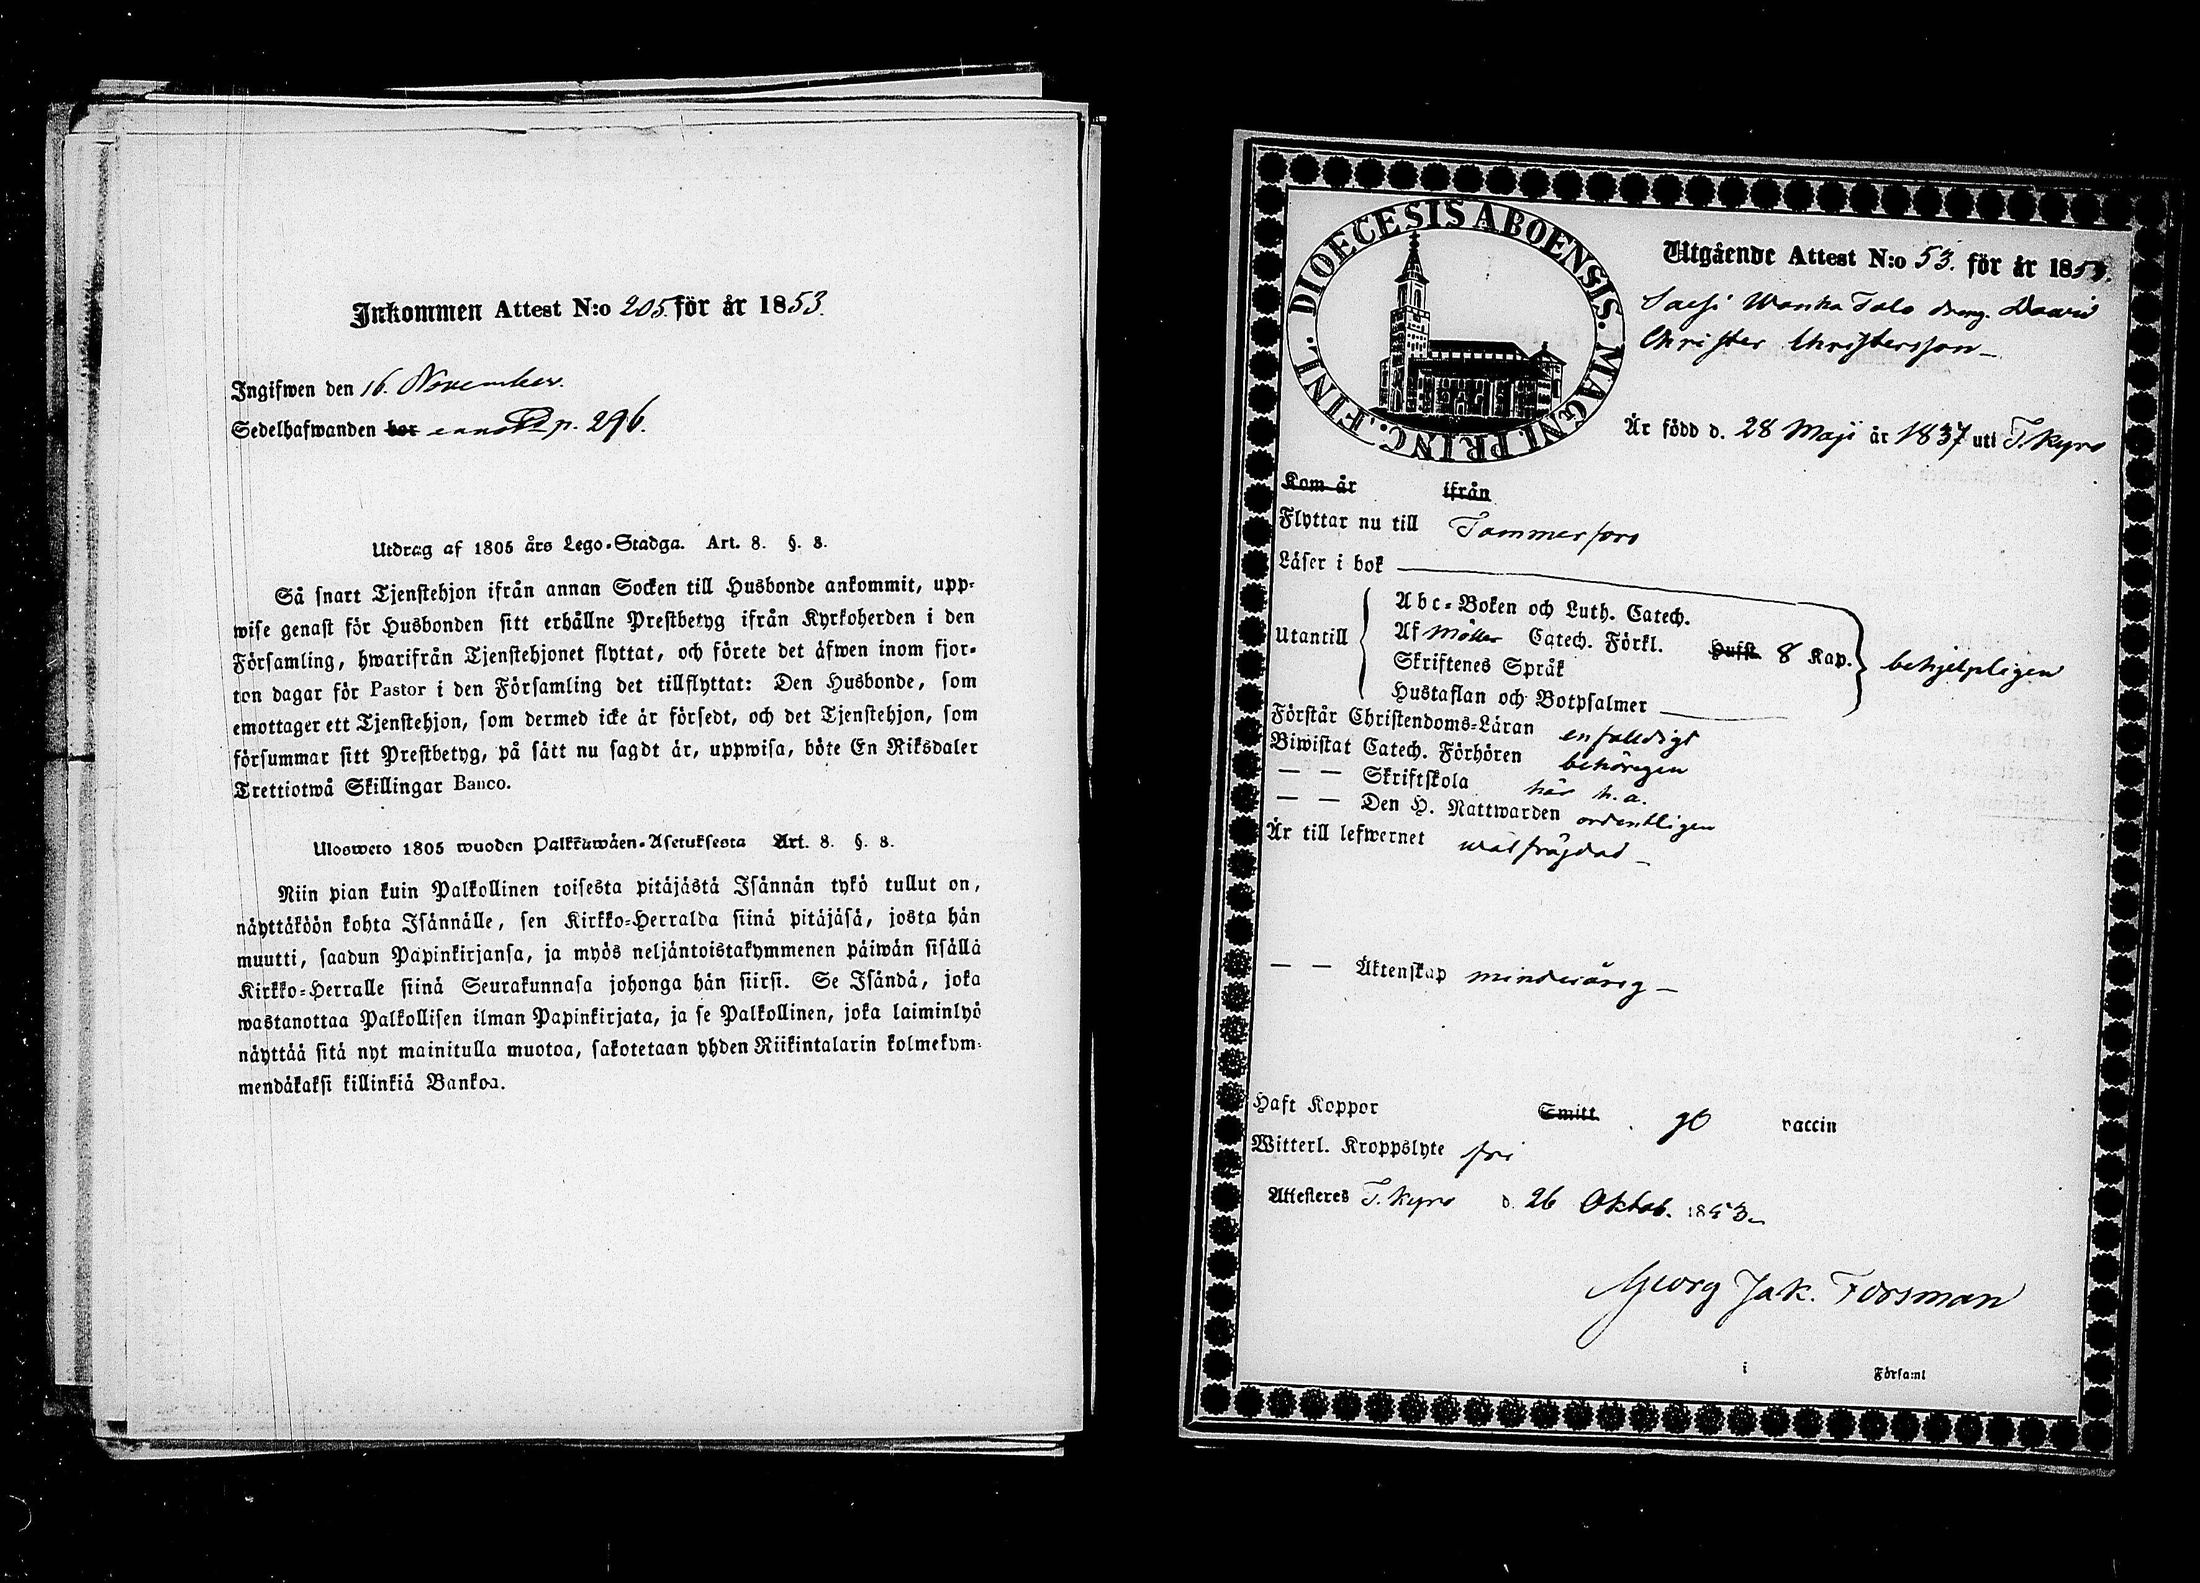 Inkommen Attest N:o 205. för år 1853.
Ingifwen den 16. November.
Sedelhafwanden bor p. 296.
Utdrag af 1805 års Lego-Stadga. Art. 8. §. 8.
Så snart Tjenstehjon ifrån annan Socken till Husbonde ankommit, upp-
wise genast för Husbonden sitt erhållne Prestbetyg ifrån Kyrkoherden i den
Församling, hwarifrån Tjenstehjonet flyttat, och förete det äfwen inom fjor-
ton dagar för Pastor i den Församling det tillflyttat: Den Husbonde, som
emottager ett Tjenstehjon, som dermed icke är försedt, och det Tjenstehjon, som
försummar sitt Prestbetyg, på sätt nu sagdt är, uppwisa, böte En Riksdaler
Trettiotwå Skillingar Banco.
Ulosweto 1805 wuoden Palkkawäen-Asetuksesta Art. 8. §. 8.
Niin pian kuin Palkollinen toisesta pitäjästä Isännän tykö tullut on,
näyttäköön kohta Isännälle, sen Kirkko-Herralda siinä pitäjäsä, josta hän
muutti, saadun Papinkirjansa, ja myös neljäntoistakymmenen päiwän sisällä
Kirkko-Herralle siinä Seurakunnasa johonga hän siirsi. Se Isändä, joka
wastanottaa Palkollisen ilman Papinkirjata, ja se Palkollinen, joka laiminlyö
näyttää sitä nyt mainitulla muotoa, sakotetaan yhden Riikintalarin kolmekym-
mendäkaksi killinkiä Bankoa.
DIOECESIS ABOENSIS. MAGNI. PRINC. FINL.
Utgående Attest N:o 53. för år 1853.
Wanha Talo dreng. David
Christer Christersson
Är född d. 28 Maji år 1837 uti T. Kyro
Kom år ifrån
Flyttar nu till Tammerfors
Läser i bok
Utantill
Abc-Boken och Luth. Catech.
Af Möller Catech. Förkl. Husft. 8 Kap.
Skriftenes Språk
Hustaflan och Botpsalmer
behjelpligen
Förstår Christendoms-Läran enfalldigt
Biwistat Catech. Förhören behörigen
— — Skriftskola här h. a.
— — Den H. Nattwarden ordentligen
Är till lefwernet wälfrägdad
— — Äktenskap minderårig
Haft Koppor Smitt. go vaccin
Witterl. Kroppslyte fri
Attesteres T. Kyro d. 26 Oktob. 1853
Georg Jak. Forsman
i Församl